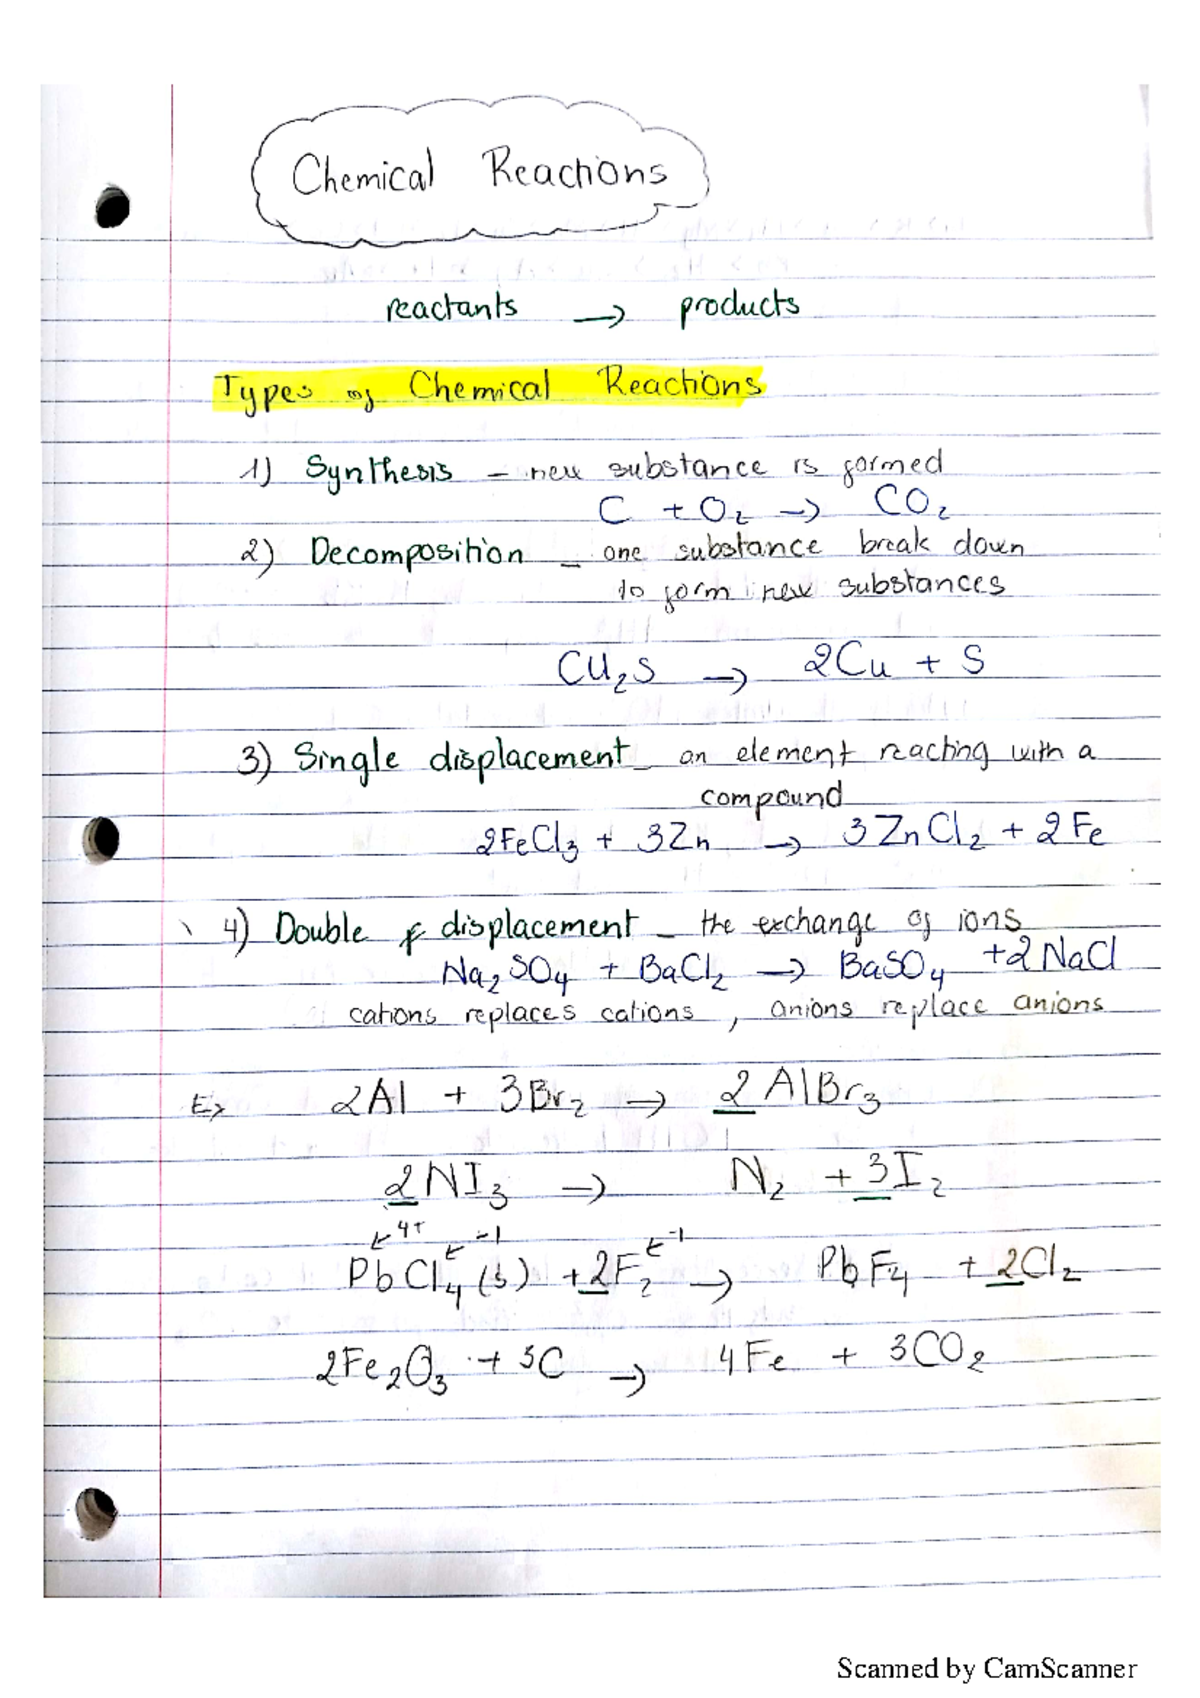 Chemical Reactions
reactants → products
Types of Chemical Reactions
1) Synthesis – new substance is formed
C + O₂ → CO₂
2) Decomposition – one substance break down
to form new substances
Cu₂S → 2Cu + S
3) Single displacement – an element reacting with a
compound
2FeCl₃ + 3Zn → 3ZnCl₂ + 2Fe
4) Double displacement – the exchange of ions
Na₂SO₄ + BaCl₂ → BaSO₄ + 2NaCl
cations replaces cations, anions replace anions
Ex 2Al + 3Br₂ → 2AlBr₃
2NI₃ → N₂ + 3I₂
4+ -1 -1
PbCl₄(s) + 2F₂ → PbF₄ + 2Cl₂
2Fe₂O₃ + 3C → 4Fe + 3CO₂
Scanned by CamScanner